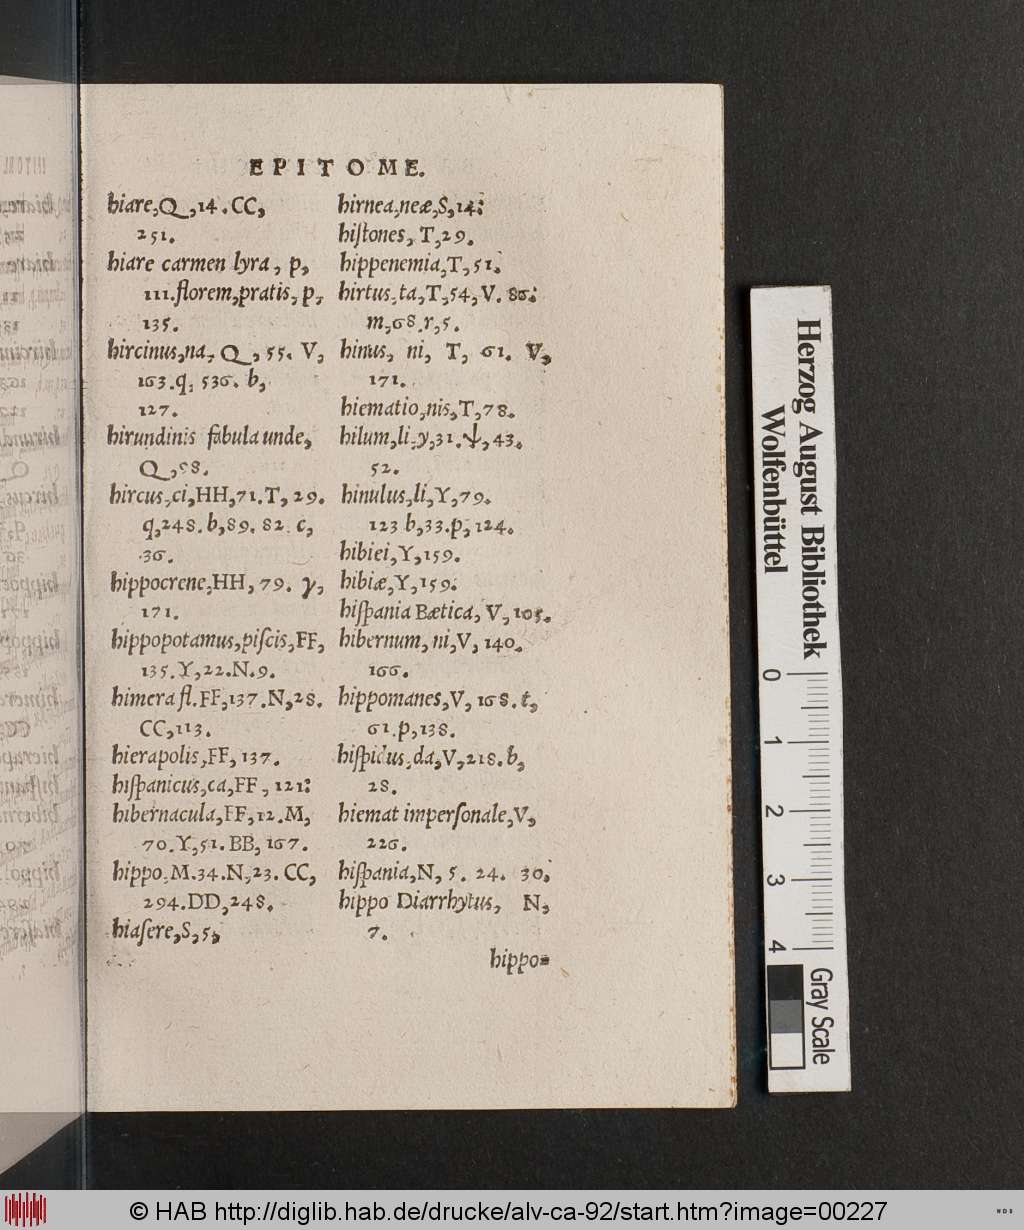 EPITOME.
hiare,Q,14.CC,
251.
hiare carmen lyra, p,
111.florem,pratis, p,
135.
hircinus,na, Q, 55. V,
163.q, 536. b,
127.
hirundinis fabula unde,
Q,98.
hircus,ci,HH,71.T, 29.
q,248.b,89. 82. c,
36.
hippocrene,HH, 79. γ,
171.
hippopotamus,piſcis,FF,
135.Y,22.N.9.
himera fl.FF,137.N,28.
CC,113.
hierapolis,FF, 137.
hiſpanicus,ca,FF, 121:
hibernacula,FF,12.M,
70.Y,51.BB, 167.
hippo,M.34.N,23. CC,
294.DD,248.
hiaſere,S,5,
hirnea,neæ,S,14:
hiſtones, T,29.
hippenemia,T,51.
hirtus,ta,T,54,V. 86:
m,68.r,5.
hinus, ni, T, 61. V,
171.
hiematio,nis,T,78.
hilum,li,y,31.ψ,43.
52.
hinulus,li,Y,79.
123 b,33.p,124.
hibiei,Y,159.
hibiæ,Y,159.
hiſpania Bætica, V,105.
hibernum, ni,V, 140.
166.
hippomanes,V, 168.t,
61.p,138.
hiſpidus,da,V,218.b,
28.
hiemat imperſonale,V,
226.
hiſpania,N, 5. 24. 30.
hippo Diarrhytus, N,
7.
hippo=
Herzog August Bibliothek
Wolfenbüttel
0 1 2 3 4
Gray Scale
© HAB http://diglib.hab.de/drucke/alv-ca-92/start.htm?image=00227